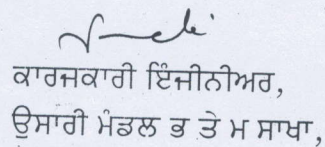 ਕਾਰਜਕਾਰੀ ਇੰਜੀਨੀਅਰ,
ਉਸਾਰੀ ਮੰਡਲ ਭ ਤੇ ਮ ਸਾਖਾ,